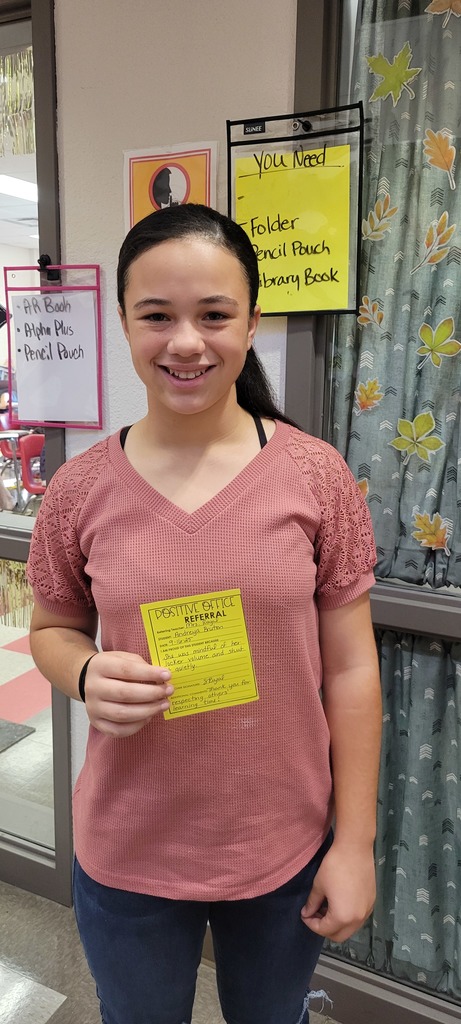 SUNEE
You Need
Folder
Pencil Pouch
Library Book
• AR Book
• Alpha Plus
• Pencil Pouch
POSITIVE OFFICE
REFERRAL
Mrs.
She was mindful of her
locker volume and shut
it quietly.
Thank you for
respecting others'
learning time!